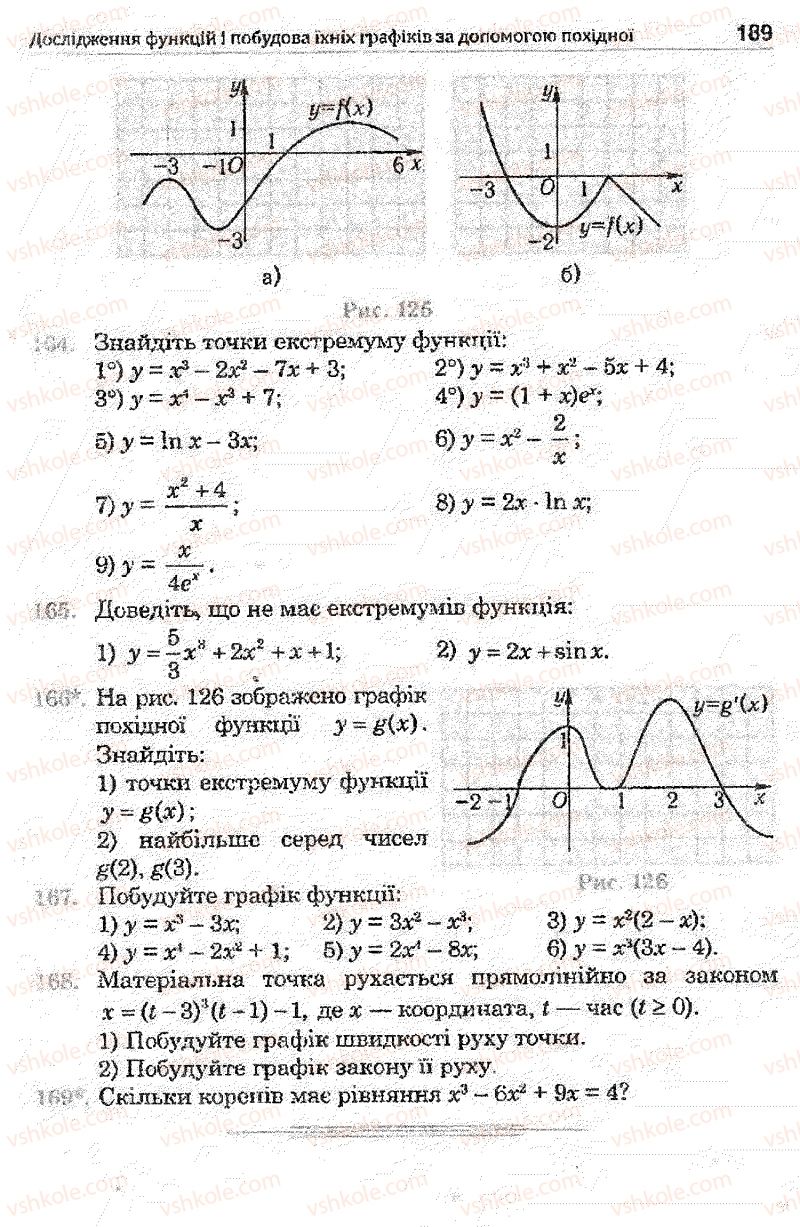 Дослідження функцій і побудова їхніх графіків за допомогою похідної 189
y y=f(x) 1 1 –3 –1 O 6 x –3
y 1 –3 O 1 x –2 y=f(x)
а) б)
Рис. 125
164. Знайдіть точки екстремуму функції:
1°) y = x³ – 2x² – 7x + 3; 2°) y = x³ + x² – 5x + 4;
3°) y = x⁴ – x³ + 7; 4°) y = (1 + x)eˣ;
5) y = ln x – 3x; 6) y = x² – 2/x;
7) y = (x² + 4)/x; 8) y = 2x · ln x;
9) y = x/(4eˣ).
165. Доведіть, що не має екстремумів функція:
1) y = 5/3 x³ + 2x² + x + 1; 2) y = 2x + sin x.
166*. На рис. 126 зображено графік
похідної функції y = g(x).
Знайдіть:
1) точки екстремуму функції
y = g(x);
2) найбільше серед чисел
g(2), g(3).
y y=g′(x) 1 –2 –1 O 1 2 3 x
Рис. 126
167. Побудуйте графік функції:
1) y = x³ – 3x; 2) y = 3x² – x³; 3) y = x²(2 – x);
4) y = x⁴ – 2x² + 1; 5) y = 2x⁴ – 8x; 6) y = x³(3x – 4).
168. Матеріальна точка рухається прямолінійно за законом
x = (t – 3)³(t – 1) – 1, де x — координата, t — час (t ≥ 0).
1) Побудуйте графік швидкості руху точки.
2) Побудуйте графік закону її руху.
169*. Скільки коренів має рівняння x³ – 6x² + 9x = 4?
vshkole.com